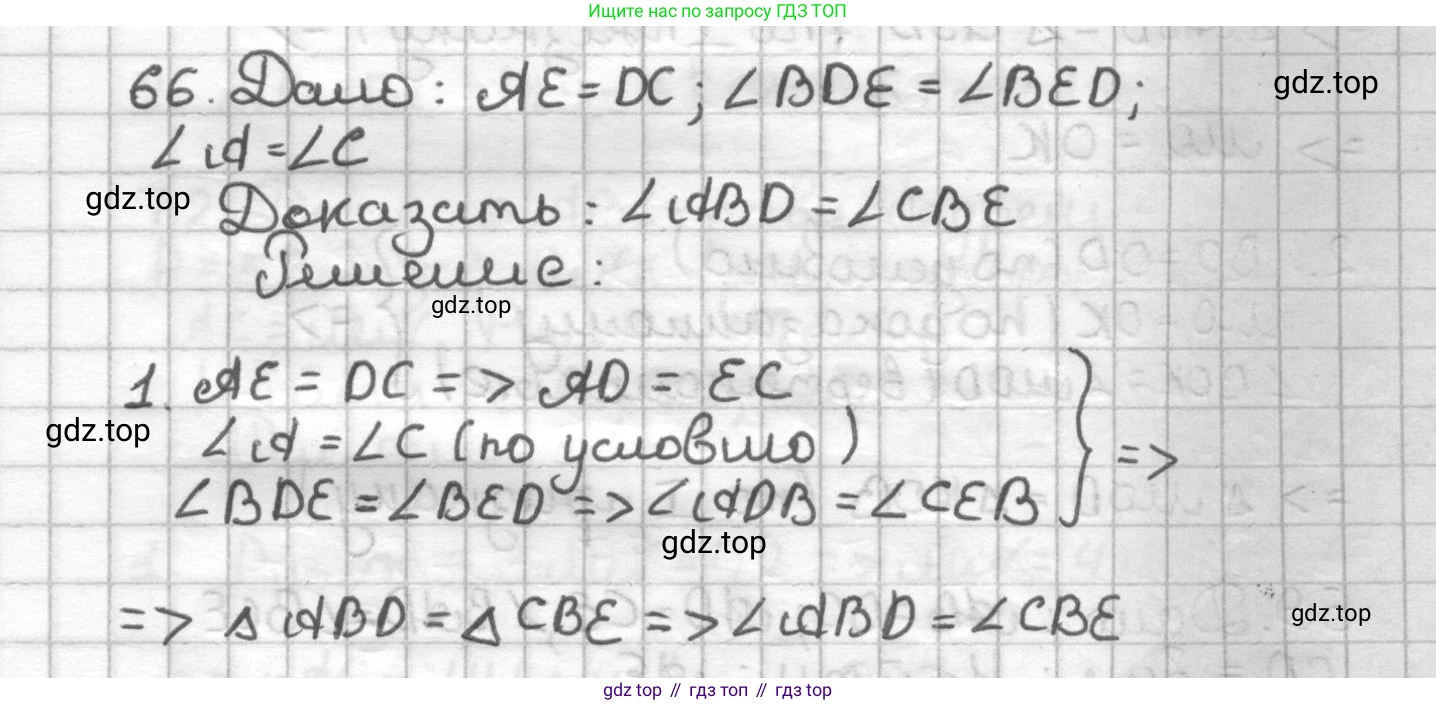 Ищите нас по запросу ГДЗ ТОП
66. Дано: AE = DC; ∠BDE = ∠BED;
gdz.top
∠A = ∠C
gdz.top
Доказать: ∠ABD = ∠CBE
Решение:
gdz.top
1. AE = DC => AD = EC
gdz.top
∠A = ∠C (по условию) } =>
∠BDE = ∠BED => ∠ADB = ∠CEB
gdz.top
=> △ABD = △CBE => ∠ABD = ∠CBE
gdz.top
gdz top // гдз топ // гдз top